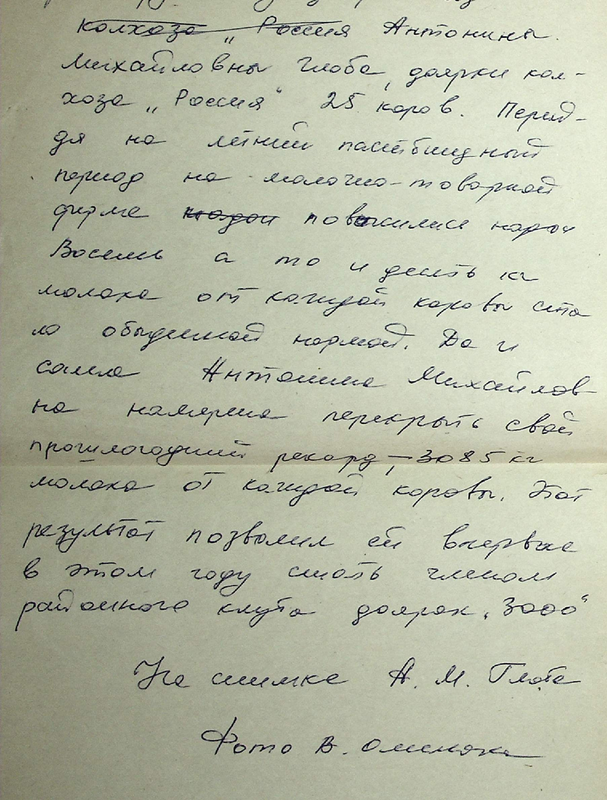 колхоза „Россия Антонина
Михайловны Глоба, доярки кол-
хоза „Россия" 25 коров. Перей-
дя на летний пастбищный
период на молочно-товарной
фирме надои повысились надои
Восемь а то и десять кг
молока от каждой коровы ста
ло обыденной нормой. Да и
сама Антонина Михайлов-
на намерена перекрыть свой
прошлогодний рекорд, – 3085 кг
молока от каждой коровы. Этот
результат позволил ей впервые
в этом году стать членом
районного клуба доярок „3000"
На снимке А. М. Глоба
Фото В.